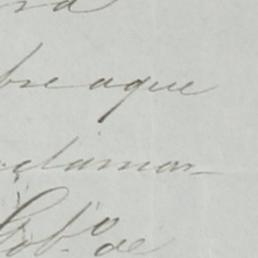 bre aque
clamar-
Gob.º de